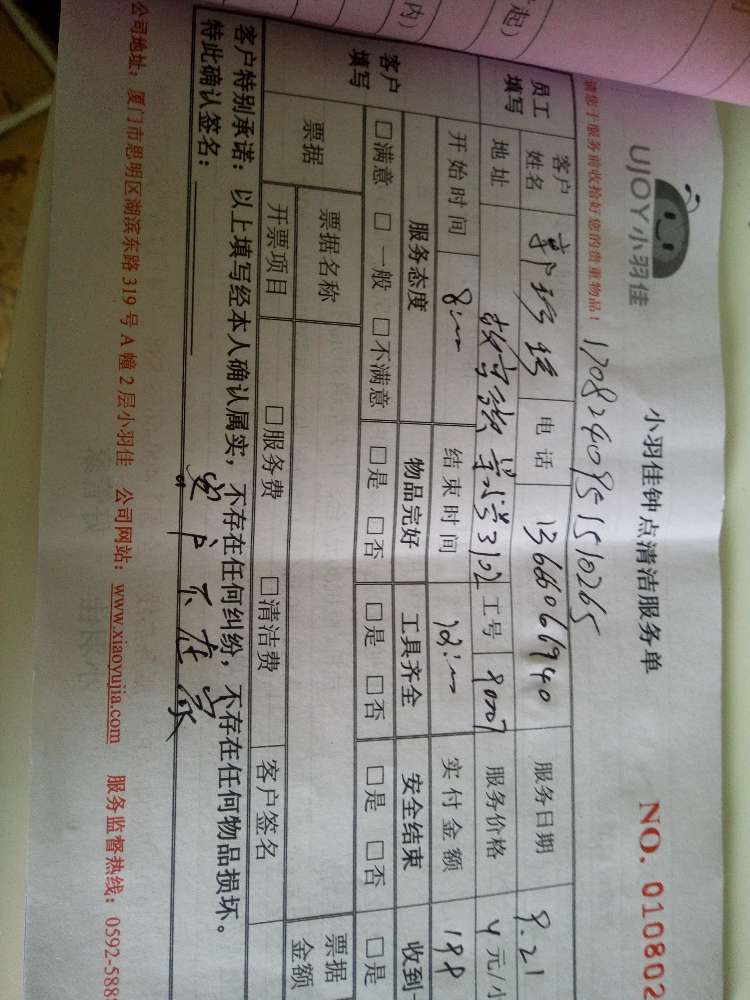 起）
内）
UJOY小羽佳
小羽佳钟点清洁服务单
NO. 010802
请您于服务前收拾好您的贵重物品！
1708240951510265
员工填写 客户姓名 电话 13666066940 服务日期 9.21
地址 3102 工号 90007 服务价格 元/小
开始时间 8:00 结束时间 12:00 实付金额 188
客户填写 服务态度 物品完好 工具齐全 安全结束 收到
□满意 □一般 □不满意 □是 □否 □是 □否 □是 □否 □是
票据 票据名称 □服务费 □清洁费 票据金额
开票项目 客户签名
客户特别承诺：以上填写经本人确认属实，不存在任何纠纷，不存在任何物品损坏。
特此确认签名： 客户不在家
公司地址：厦门市思明区湖滨东路319号A幢2层小羽佳 公司网站：www.xiaoyujia.com 服务监督热线：0592-588